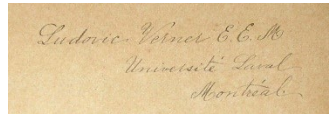 Ludovic Verner E.E.M
Université Laval
Montréal